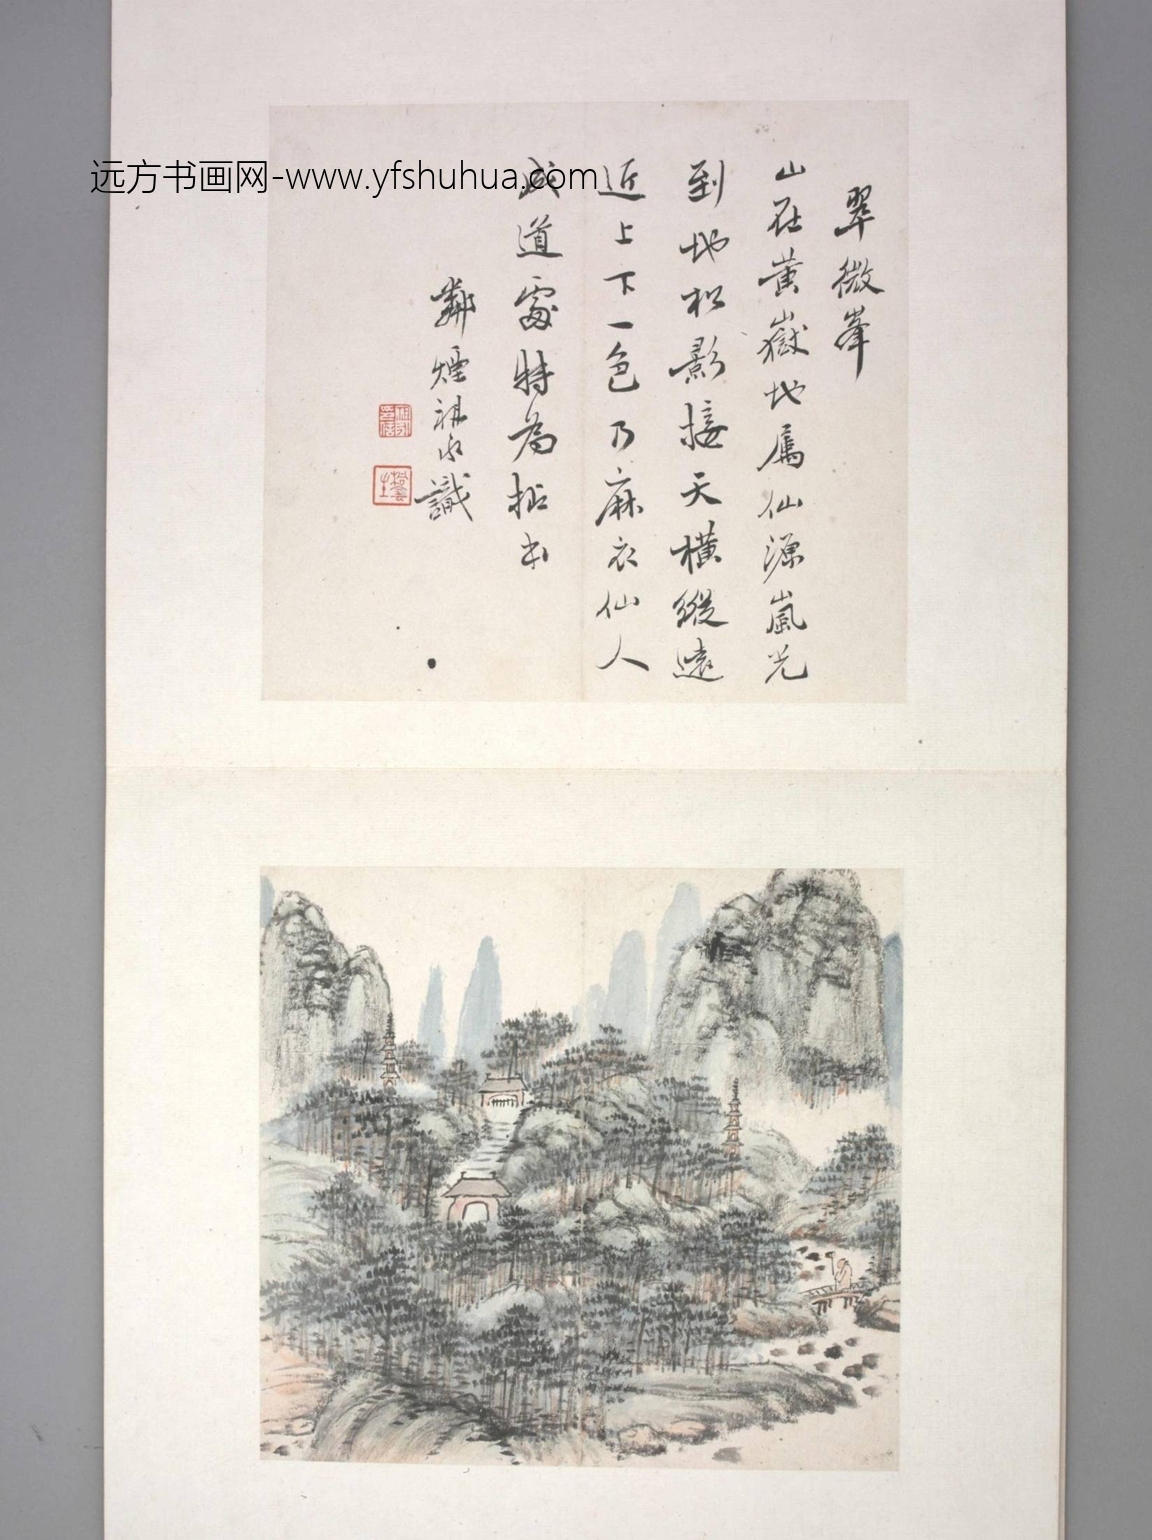 远方书画网-www.yfshuhua.com
翠微峯
山在黃嶽地屬仙源嵐光
到地松影接天橫縱遠
近上下一色乃麻衣仙人
成道處特為拈出
鄰煙祖永識